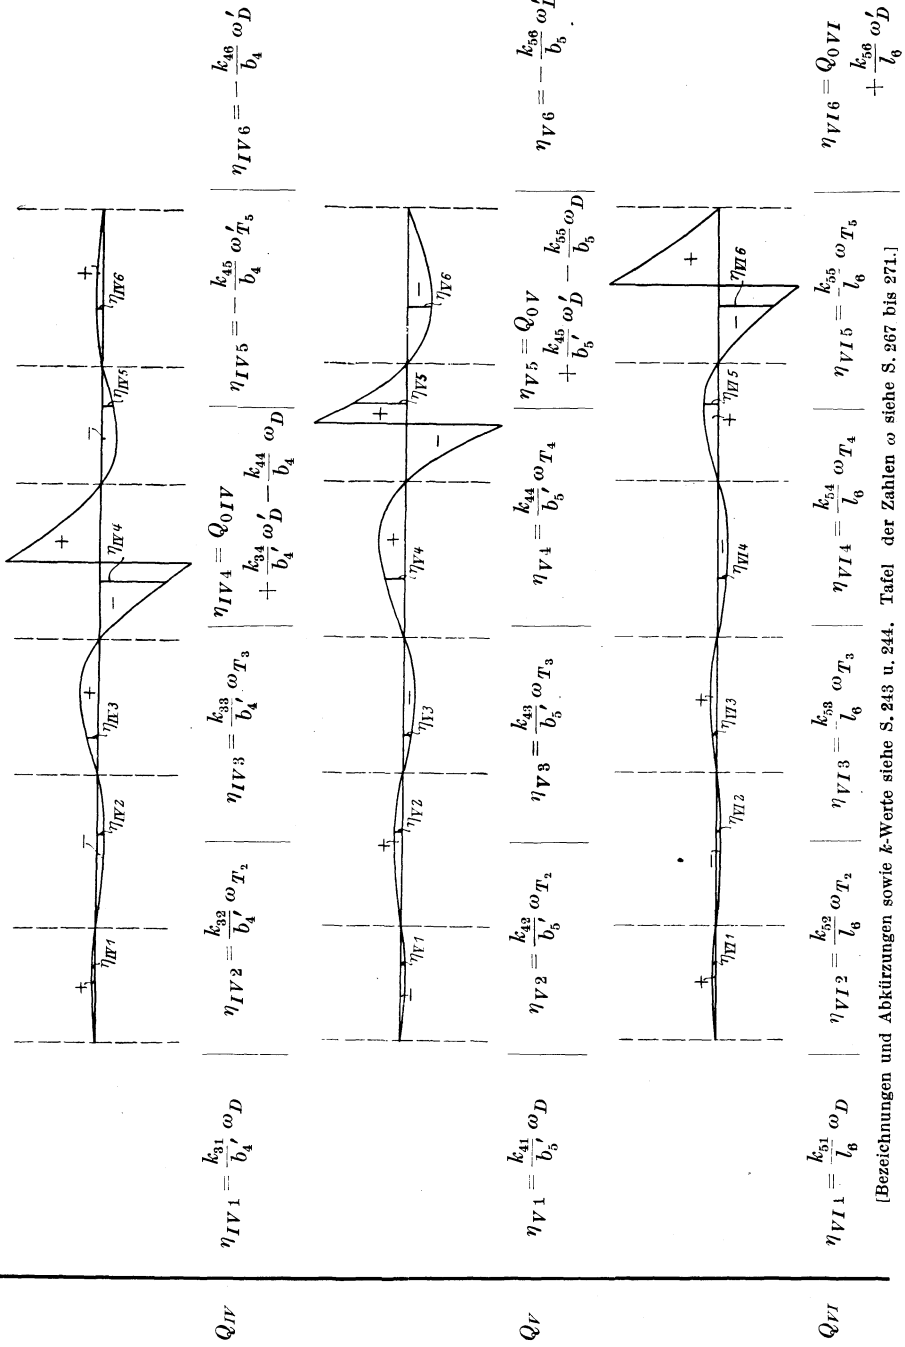 Q_IV
+ η_IV1 − η_IV2 + η_IV3 − + η_IV4 − η_IV5 + η_IV6
η_IV1 = k₃₁/b₄′ ω_D | η_IV2 = k₃₂/b₄′ ω_T₂ | η_IV3 = k₃₃/b₄′ ω_T₃ | η_IV4 = Q_0IV | η_IV5 = − k₄₅/b₄ ω′_T₅ | η_IV6 = − k₄₆/b₄ ω′_D
+ k₃₄/b₄′ ω′_D − k₄₄/b₄ ω_D
Q_V
− η_V1 + η_V2 − η_V3 + η_V4 − + η_V5 − η_V6
η_V1 = k₄₁/b₅′ ω_D | η_V2 = k₄₂/b₅′ ω_T₂ | η_V3 = k₄₃/b₅′ ω_T₃ | η_V4 = k₄₄/b₅′ ω_T₄ | η_V5 = Q_0V | η_V6 = − k₅₆/b₅ ω′_D
+ k₄₅/b₅′ ω′_D − k₅₅/b₅ ω_D
Q_VI
+ η_VI1 − η_VI2 + η_VI3 − η_VI4 + η_VI5 − η_VI6 +
η_VI1 = k₅₁/l₆ ω_D | η_VI2 = k₅₂/l₆ ω_T₂ | η_VI3 = k₅₃/l₆ ω_T₃ | η_VI4 = k₅₄/l₆ ω_T₄ | η_VI5 = k₅₅/l₆ ω_T₅ | η_VI6 = Q_0VI
+ k₅₆/l₆ ω′_D
[Bezeichnungen und Abkürzungen sowie k-Werte siehe S. 243 u. 244. Tafel der Zahlen ω siehe S. 267 bis 271.]